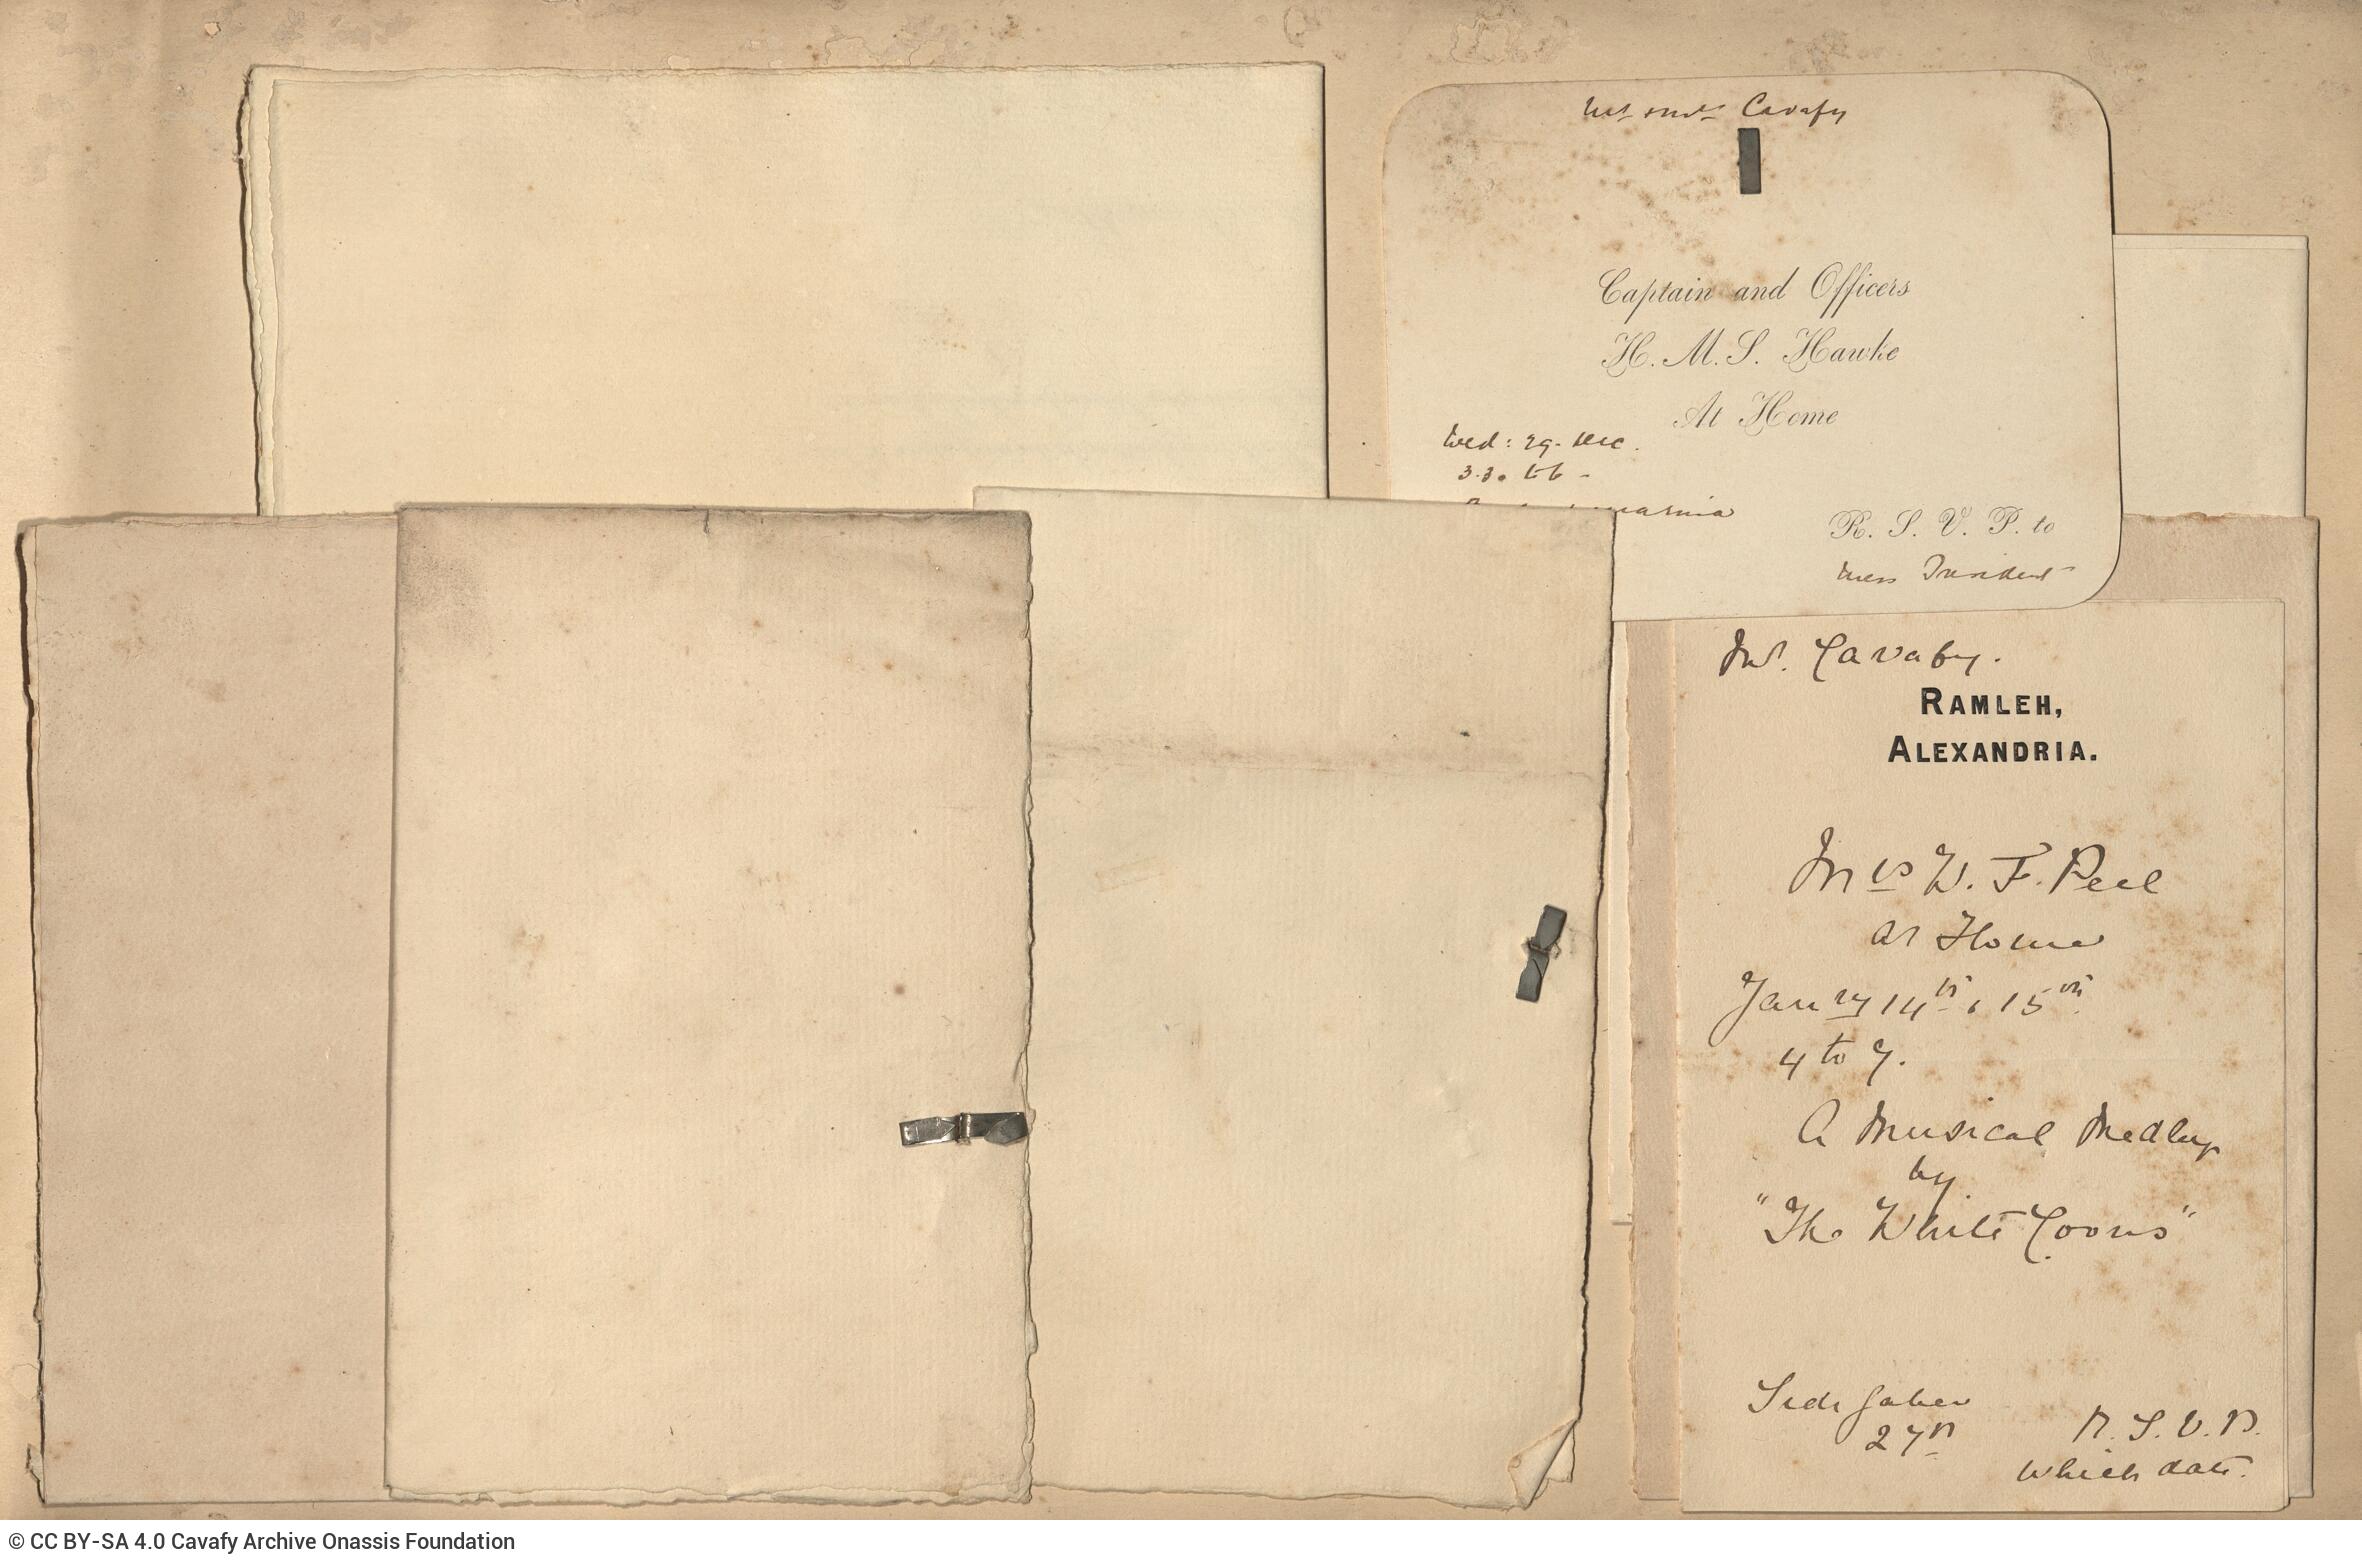 Mr & Mrs Cavafy
Captain and Officers
H. M. S. Hawke
At Home
Wed: 29. Dec.
3.30 to 6 -
R. S. V. P. to
Mess President
Mr. Cavafy.
RAMLEH,
ALEXANDRIA.
Mrs W. F. Peel
at Home
Janry 14th & 15th
4 to 7.
A Musical Medley
by
"The White Coons"
Sidi Gaber
27th
R. S. V. P.
which date.
© CC BY-SA 4.0 Cavafy Archive Onassis Foundation